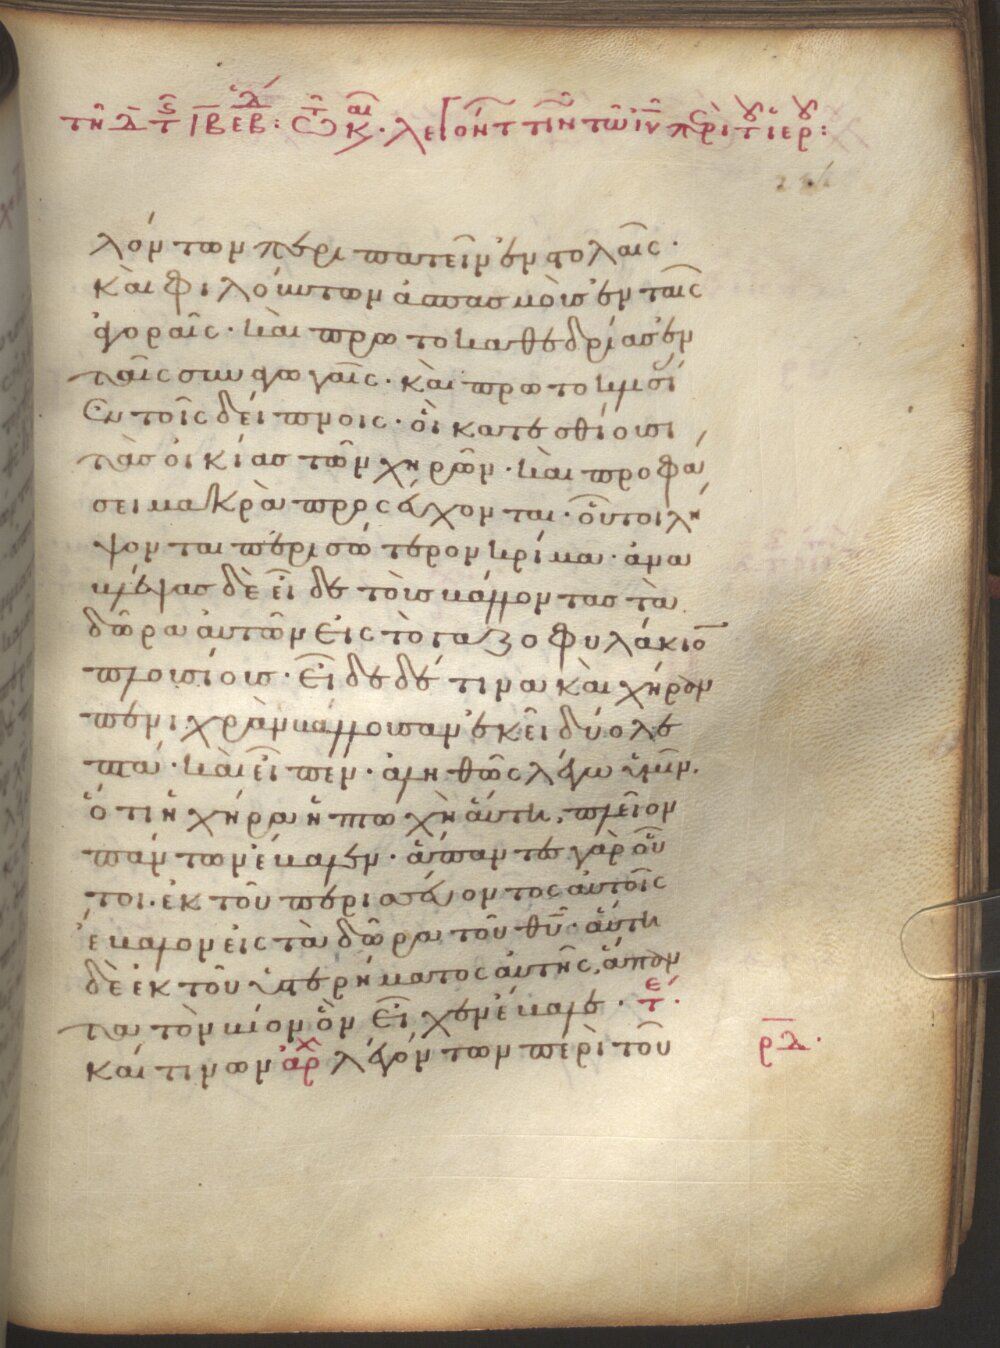 τῆ δ τ ς ΙΒ ἑβδ: τῶ κ αι. λεγόντ τιν τῶ ἰυ πρὶ τοῦ ἱερου:
λόντων περι πατεῖν ἐν στολαῖς·
καὶ φιλούντων ἀσπασμοὺς ἐν ταῖς
ἀγοραῖς· καὶ πρωτοκαθεδρίας ἐν
ταῖς συναγωγαῖς· καὶ πρωτοκλισί
Ἐν τοῖς δείπνοις· οἳ κατεσθίουσι
τὰς οἰκίας τῶν χηρῶν· καὶ προφά
σει μακρὰ προσέυχονται· οὗτοι λή
ψονται περισσώτερον κρίμα· ἀνα
βλέψας δὲ εἶδε τοὺς βάλλοντας τὰ
δῶρα αὐτῶν εἰς τὸ γαζοφυλάκιο
πλουσίους· εἶδε δέ τινα καὶ χήραν
πενιχρὰν βάλλουσαν ἐκεῖ δύο λε
πτά· καὶ εἶπεν· ἀληθῶς λέγω ὑμῖν,
ὅτι ἡ χήρα ἡ πτωχὴ αὕτη, πλεῖον
πάντων ἔβαλεν· ἅπαντες γὰρ οὗ
τοι· ἐκ τοῦ περισσέυοντος αὐτοῖς
ἔβαλον εἰς τὰ δῶρα τοῦ θυ· αὕτη
δὲ ἐκ τοῦ ὑστερήματος αὐτῆς, ἅπαν
τα τὸν βίον ὃν εἶχεν ἔβαλε· τε·
καί τινων ἀρχ λεγόντων περὶ τοῦ
ρλ·